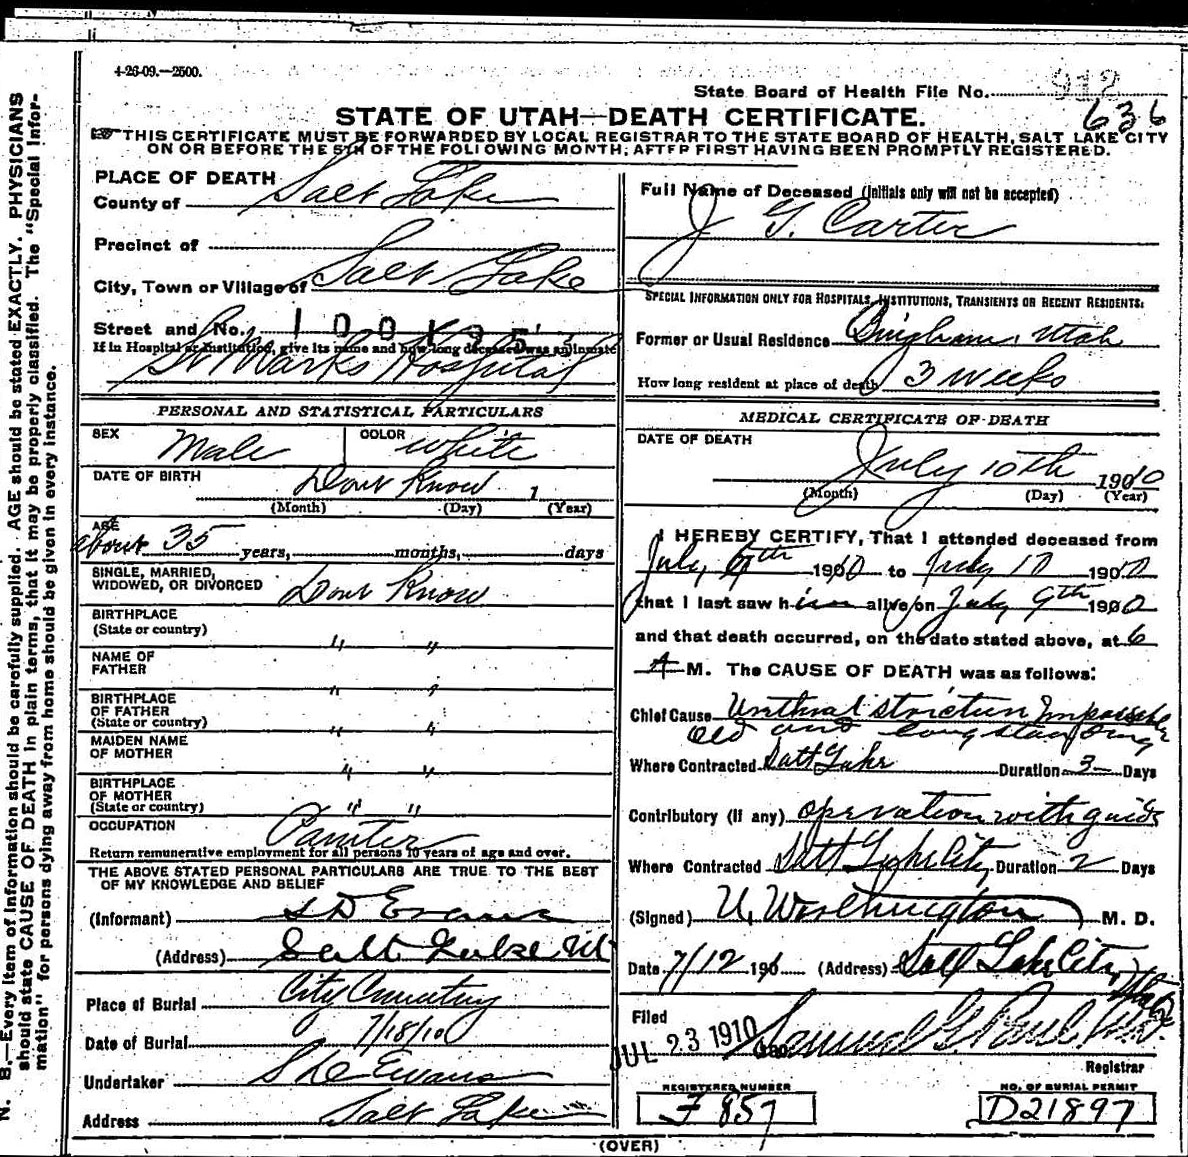 4-26-09.—2500.
State Board of Health File No. 912
636
STATE OF UTAH—DEATH CERTIFICATE.
THIS CERTIFICATE MUST BE FORWARDED BY LOCAL REGISTRAR TO THE STATE BOARD OF HEALTH, SALT LAKE CITY
ON OR BEFORE THE 5TH OF THE FOLLOWING MONTH, AFTER FIRST HAVING BEEN PROMPTLY REGISTERED.
PLACE OF DEATH
County of Salt Lake
Precinct of
City, Town or Village of Salt Lake
Street and No.
If in Hospital or Institution, give its name and how long deceased was an inmate
St Marks Hospital
PERSONAL AND STATISTICAL PARTICULARS
SEX Male COLOR White
DATE OF BIRTH Dont Know 1
(Month) (Day) (Year)
AGE about 35 years, months, days
SINGLE, MARRIED,
WIDOWED, OR DIVORCED Dont Know
BIRTHPLACE
(State or country) " "
NAME OF
FATHER " "
BIRTHPLACE
OF FATHER
(State or country) " "
MAIDEN NAME
OF MOTHER " "
BIRTHPLACE
OF MOTHER
(State or country) " "
OCCUPATION Painter
Return remunerative employment for all persons 10 years of age and over.
THE ABOVE STATED PERSONAL PARTICULARS ARE TRUE TO THE BEST
OF MY KNOWLEDGE AND BELIEF
(Informant) S D Evans
(Address) Salt Lake Ut
Place of Burial City Cemetery
Date of Burial 7/18/10
Undertaker S D Evans
Address Salt Lake
Full Name of Deceased (Initials only will not be accepted)
J G. Carter
SPECIAL INFORMATION ONLY FOR HOSPITALS, INSTITUTIONS, TRANSIENTS OR RECENT RESIDENTS:
Former or Usual Residence Bingham, Utah
How long resident at place of death 3 weeks
MEDICAL CERTIFICATE OF DEATH
DATE OF DEATH
July 10th 1910
(Month) (Day) (Year)
I HEREBY CERTIFY, That I attended deceased from
July 1910 to July 10 1910
that I last saw him alive on July 9th 1910
and that death occurred, on the date stated above, at 6
A M. The CAUSE OF DEATH was as follows:
Chief Cause Urethral stricture Impassable
old and long standing
Where Contracted Salt Lake Duration 3 Days
Contributory (if any) operation with guide
Where Contracted Salt Lake City Duration 2 Days
(Signed) U. Worthington M. D.
Date 7/12 191 (Address) Salt Lake City Utah
Filed
JUL 23 1910 Samuel G. Paul M.D.
Registrar
REGISTERED NUMBER
F 857
NO. OF BURIAL PERMIT
D21897
(OVER)
N. B.—Every item of information should be carefully supplied. AGE should be stated EXACTLY. PHYSICIANS
should state CAUSE OF DEATH in plain terms, that it may be properly classified. The "Special Infor-
mation" for persons dying away from home should be given in every instance.